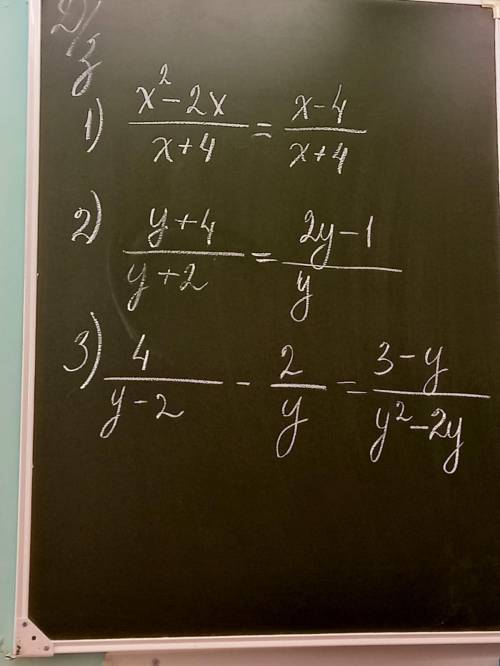 Д/з
1) (x² - 2x)/(x+4) = (x-4)/(x+4)
2) (y+4)/(y+2) = (2y-1)/y
3) 4/(y-2) - 2/y = (3-y)/(y²-2y)